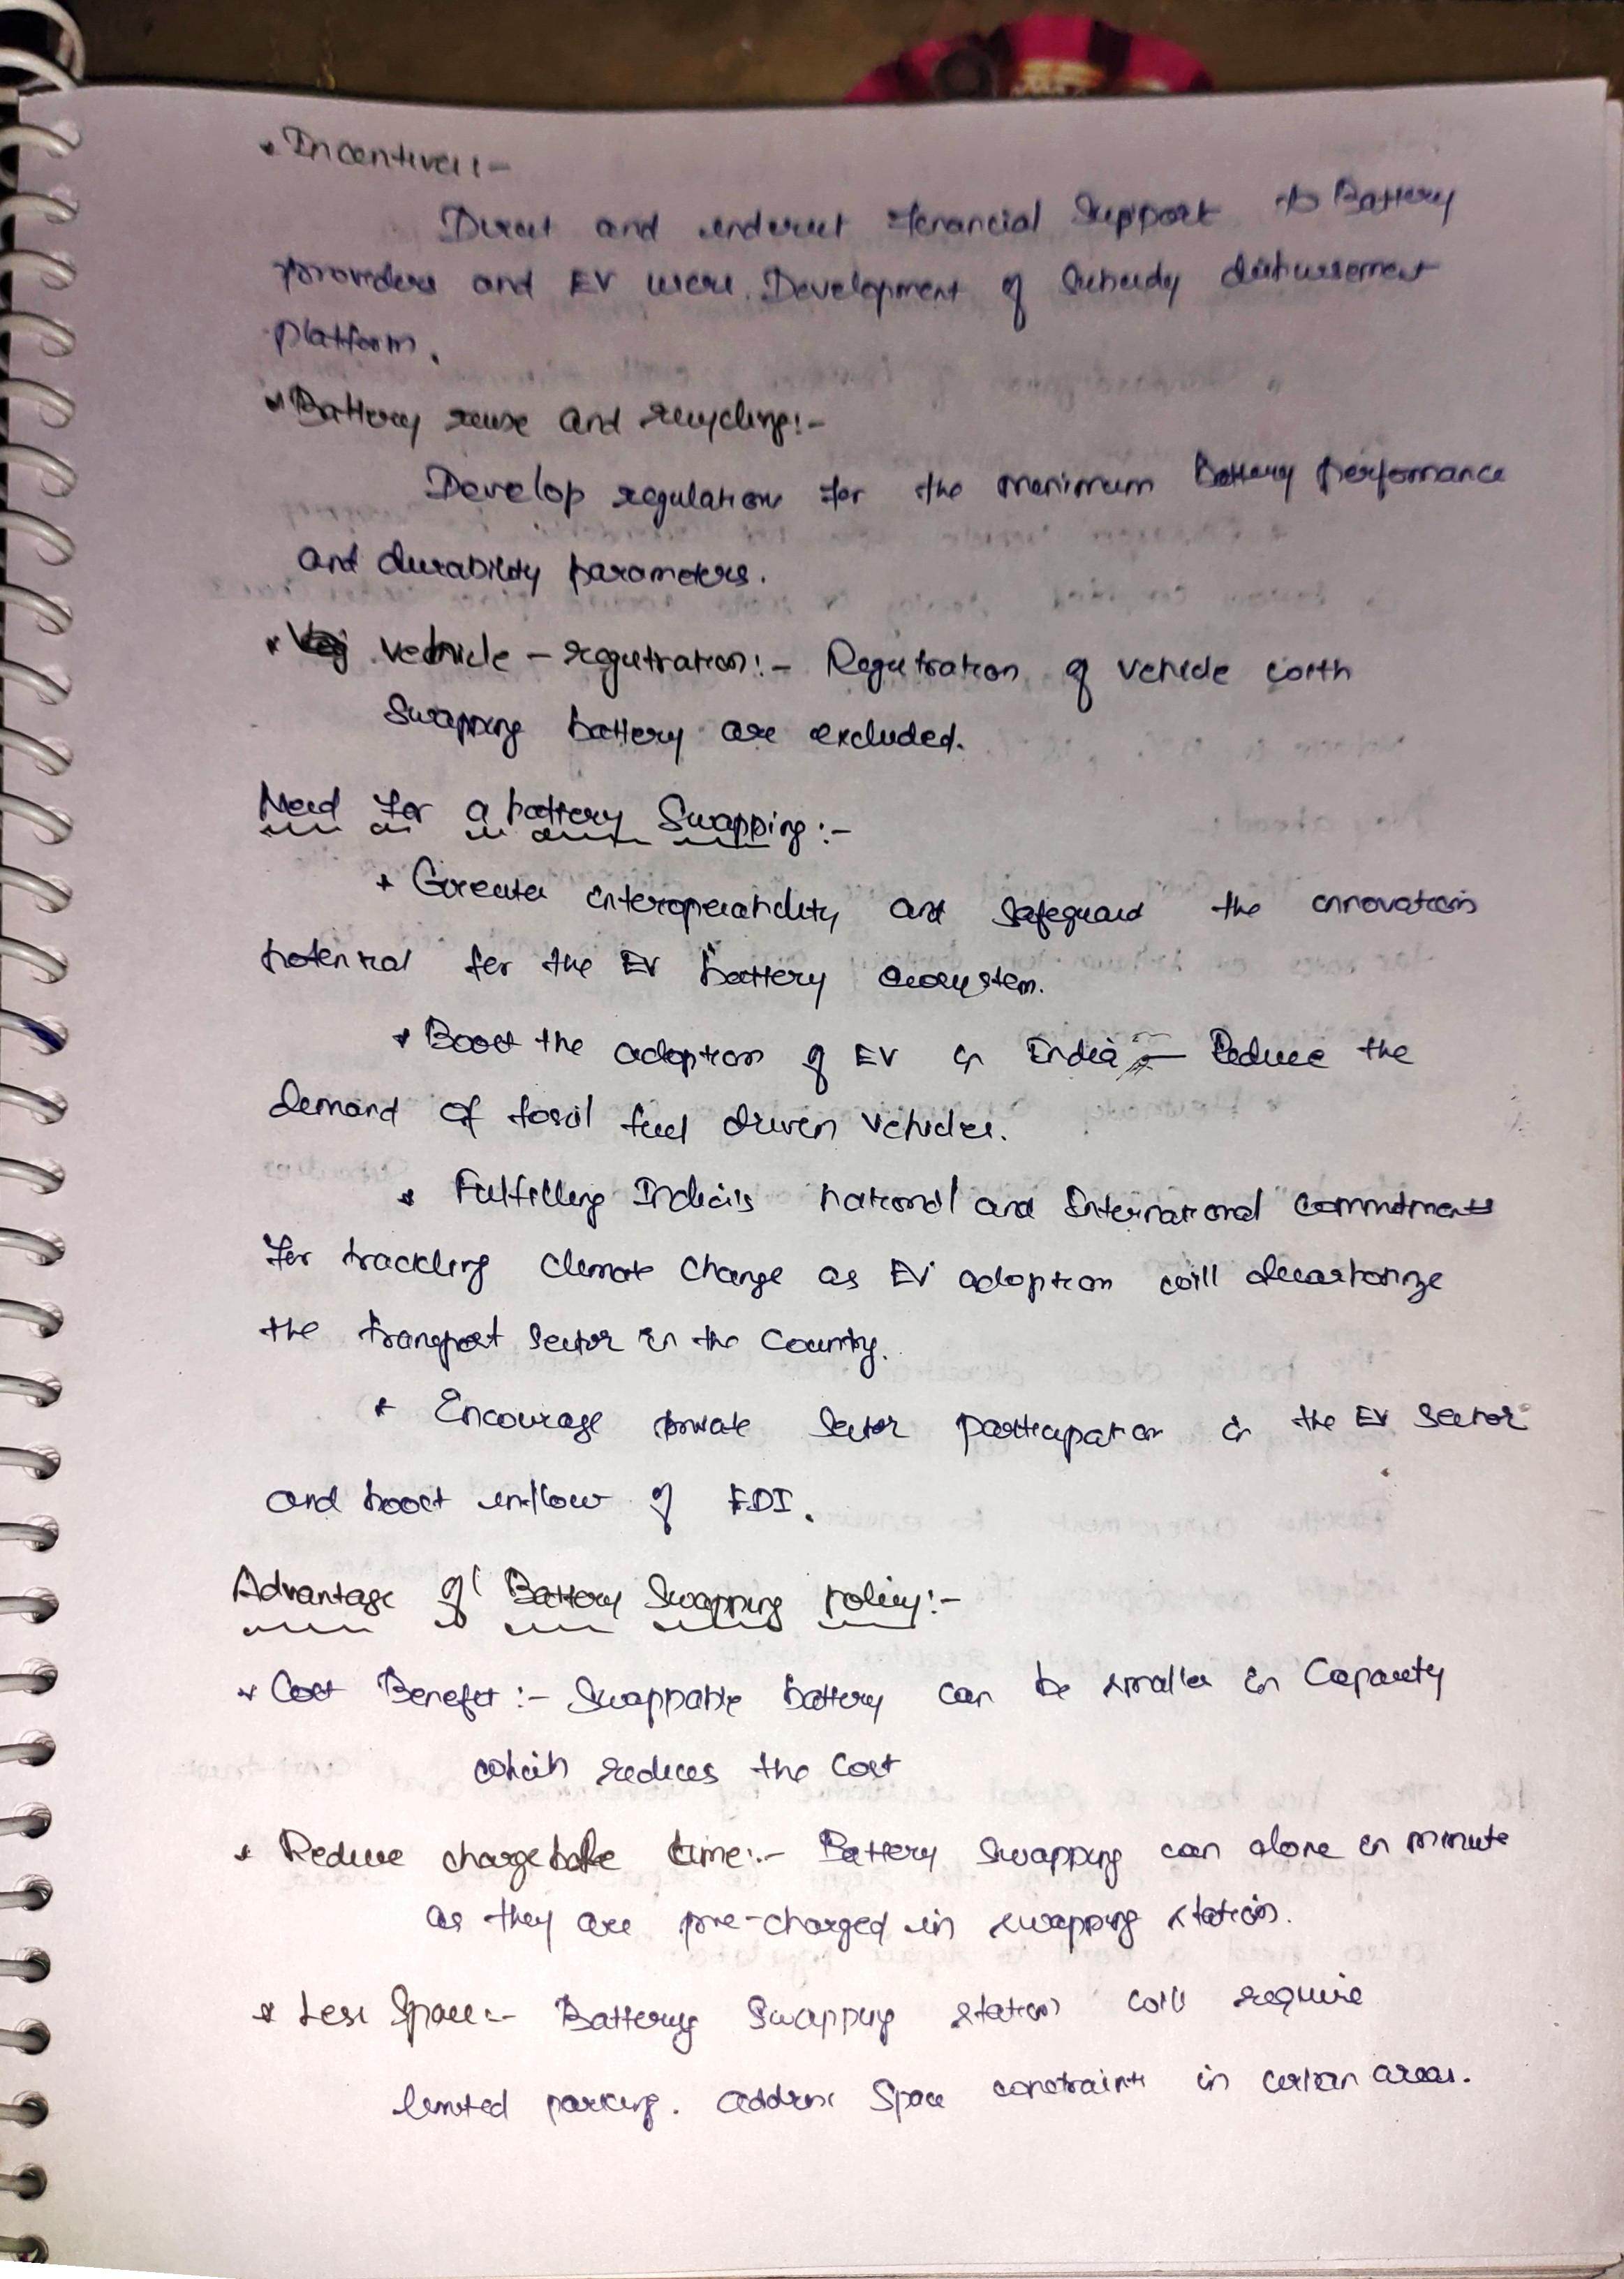 * Incentives:-
Direct and indirect financial Support to Battery
providers and EV users. Development of Subsidy disbursement
platform.
* Battery reuse and recycling:-
Develop regulations for the minimum Battery performance
and durability parameters.
* vechicle - registration:- Registration of vehicle with
Swapping battery are excluded.
Need for a battery Swapping:-
* Greater interoperability and safeguard the innovation
potential for the EV battery ecosystem.
* Boost the adoption of EV in India - Reduce the
demand of fossil fuel driven vehicles.
* Fulfilling India's national and International commitments
for trackling climate change as EV adoption will decarbonize
the transport sector in the country.
* Encourage private sector participation in the EV sector
and boost inflow of FDI.
Advantage of Battery Swapping policy:-
* Cost Benefit:- Swappable battery can be smaller in Capacity
which reduces the cost
* Reduce charge time:- Battery swapping can done in minute
as they are pre-charged in swapping station.
* Less Space:- Battery Swapping station will require
limited parking. address space constraints in urban areas.